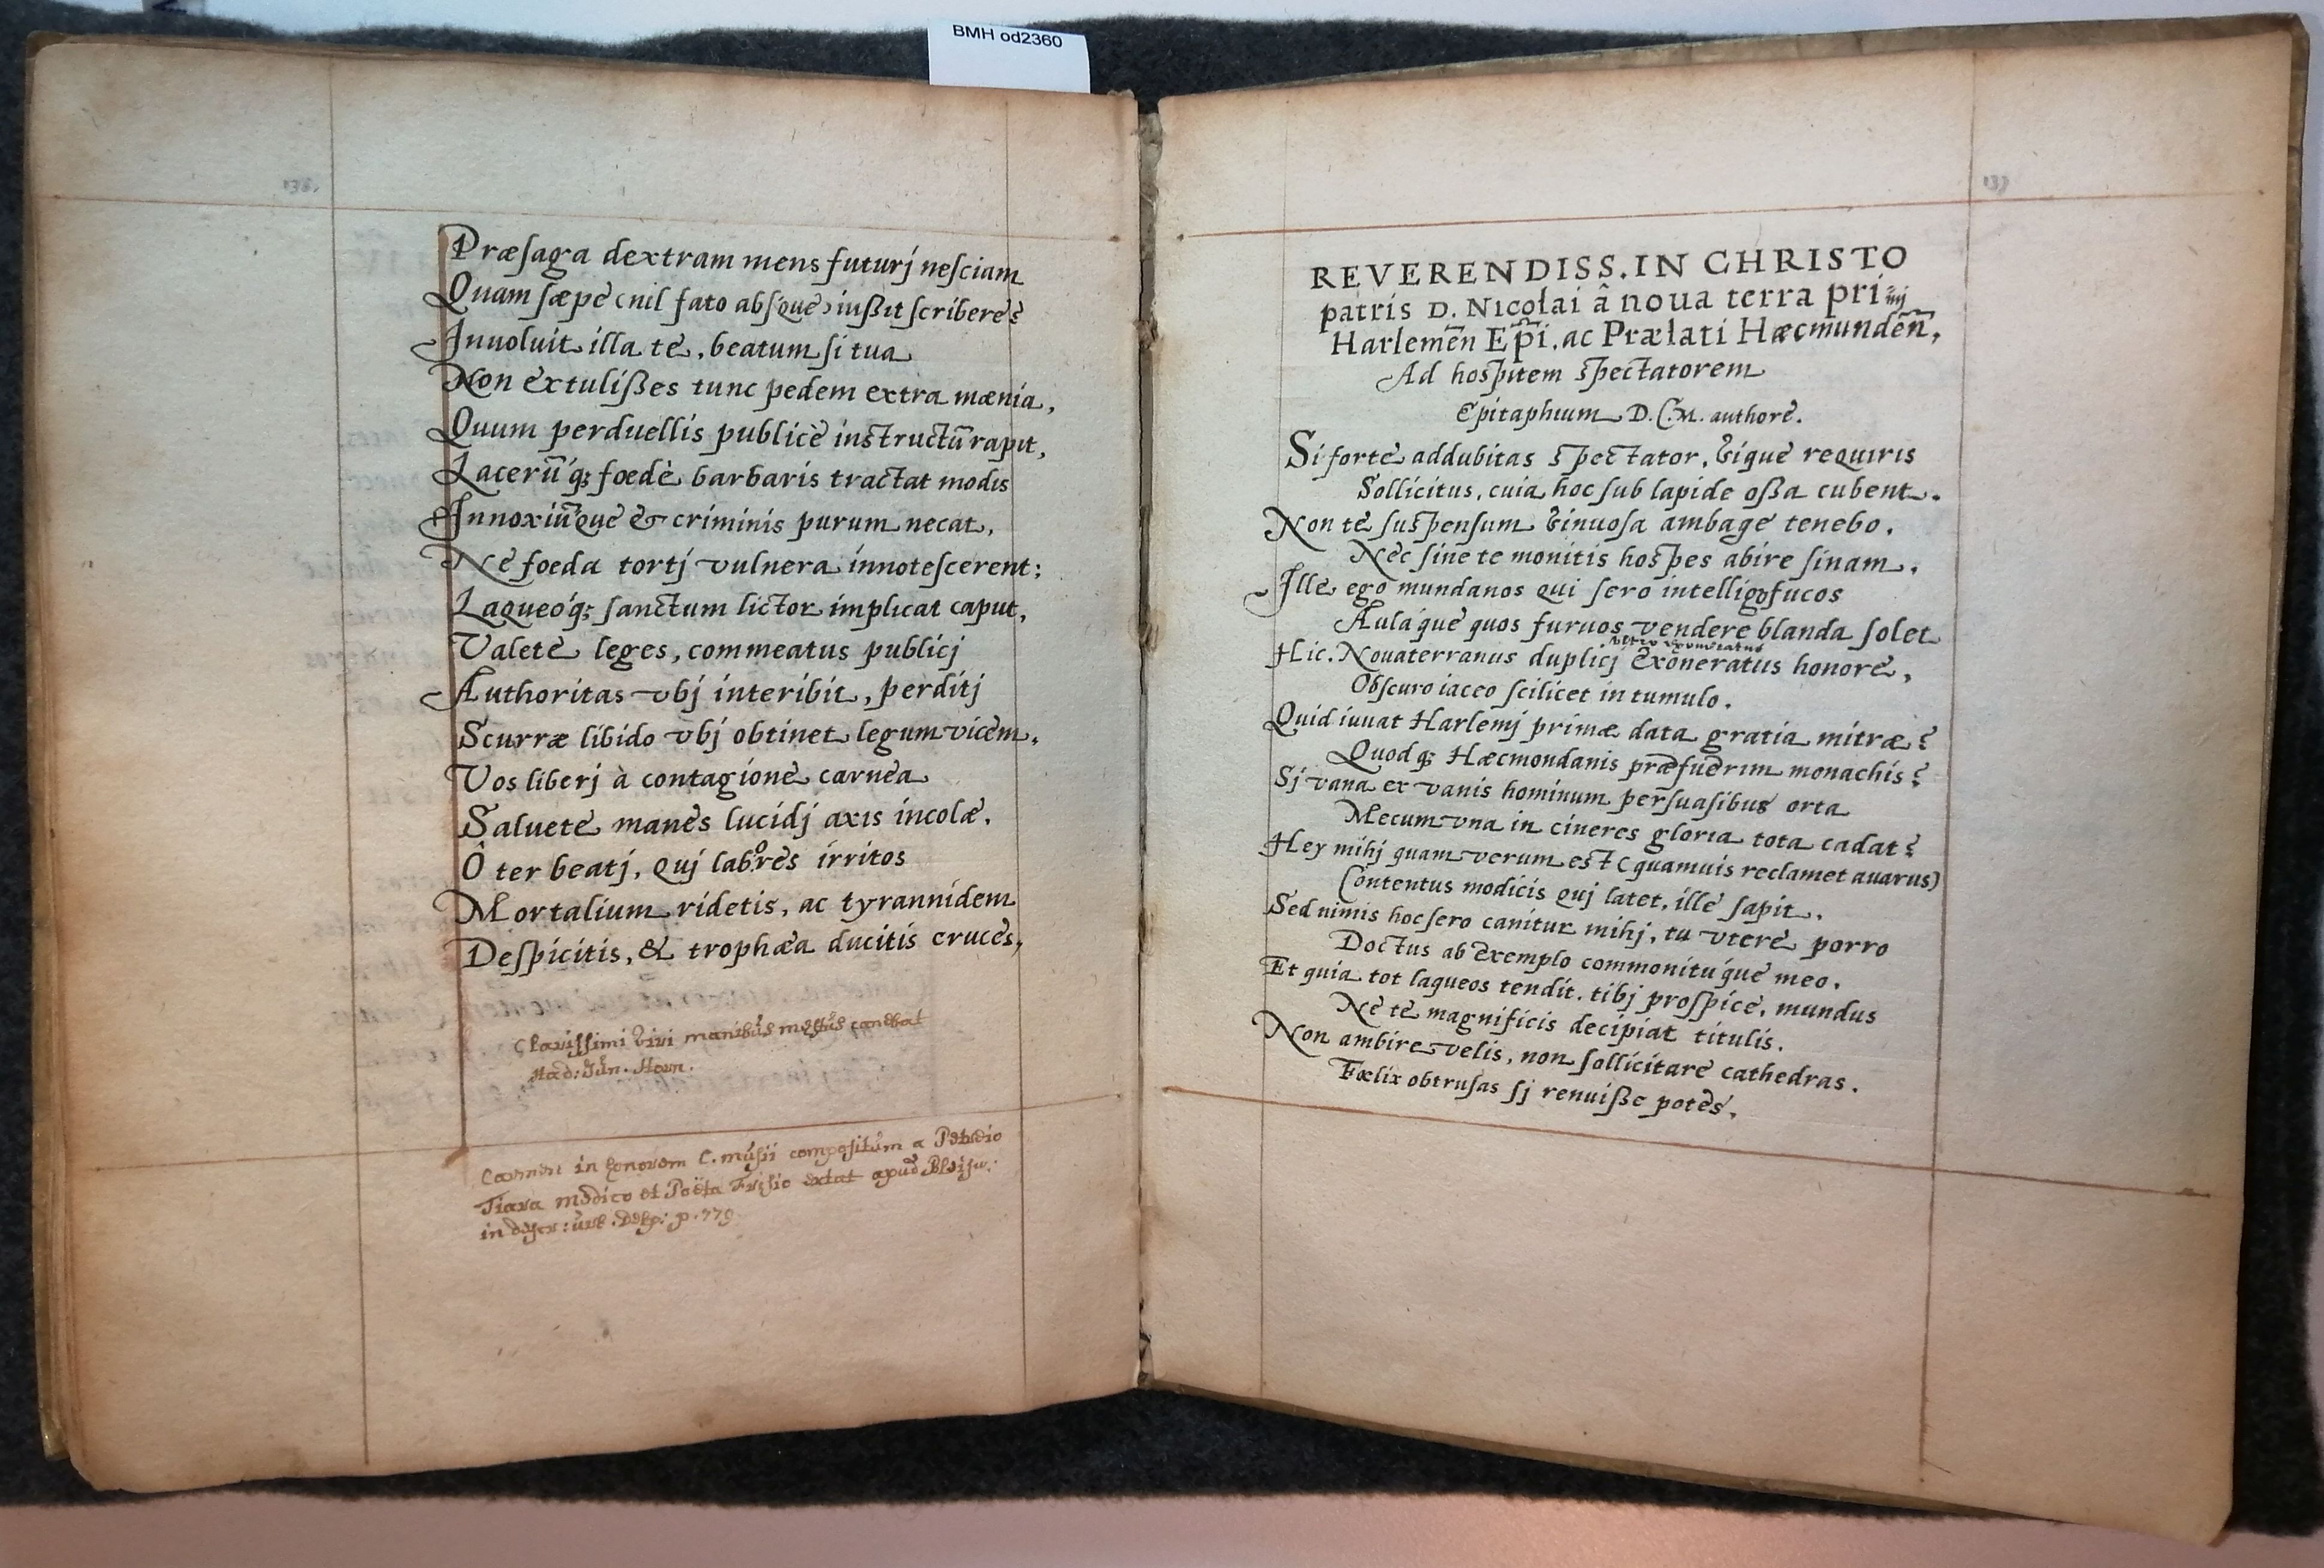 BMH od2360
138.
Præsaga dextram mens futurj nesciam
Quam sæpe (nil fato absque) iußit scribere?
Inuoluit illa te, beatum si tua
Non extulißes tunc pedem extra mænia,
Quum perduellis publicè instructū rapit,
Lacerū q; foedè barbaris tractat modis
Innoxiūque & criminis purum necat,
Ne foeda tortj vulnera innotescerent;
Laqueoq; sanctum lictor implicat caput,
Valete leges, commeatus publicj
Authoritas vbj interibit, perditj
Scurræ libido vbj obtinet legum vicem,
Vos liberj à contagione carnea
Saluete manes lucidj axis incolæ,
Ô ter beatj, quj labores irritos
Mortalium ridetis, ac tyrannidem
Despicitis, & trophæa ducitis cruces,
Clarissimi viri manibus mestus canebat
Had: Jun. Horn.
Carmen in honorem C. musii compositum a Petreio
Tiara medico et Poëta Frisio extat apud Bleisw:
in descr: urb. Delp: p. 779
REVERENDISS. IN CHRISTO
patris D. Nicolai â noua terra primj
Harlemen̄ Ep̄i. ac Prælati Hæcmunden̄,
Ad hospitem spectatorem
Epitaphium D. C. M. authore.
Si forte addubitas spectator, vique requiris
Sollicitus, cuia hoc sub lapide oßa cubent.
Non te suspensum vinuosa ambage tenebo,
Nec sine te monitis hospes abire sinam,
Ille ego mundanos qui sero intelligo fucos
Aulaque quos furuos vendere blanda solet
Hic. Nouaterranus duplicj exoneratus honore,
Obscuro iaceo scilicet in tumulo.
Quid iuuat Harlemj primæ data gratia mitræ?
Quodq; Hæcmondanis præfuerim monachis?
Sj vana ex vanis hominum persuasibus orta
Mecum vna in cineres gloria tota cadat?
Hey mihj quam verum est (quamuis reclamet auarus)
Contentus modicis quj latet, ille sapit,
Sed nimis hoc sero canitur mihj, tu vtere porro
Doctus ab exemplo commonituque meo,
Et quia tot laqueos tendit, tibj prospice, mundus
Ne te magnificis decipiat titulis.
Non ambire velis, non sollicitare cathedras,
Fœlix obtrusas sj renuiße potes,